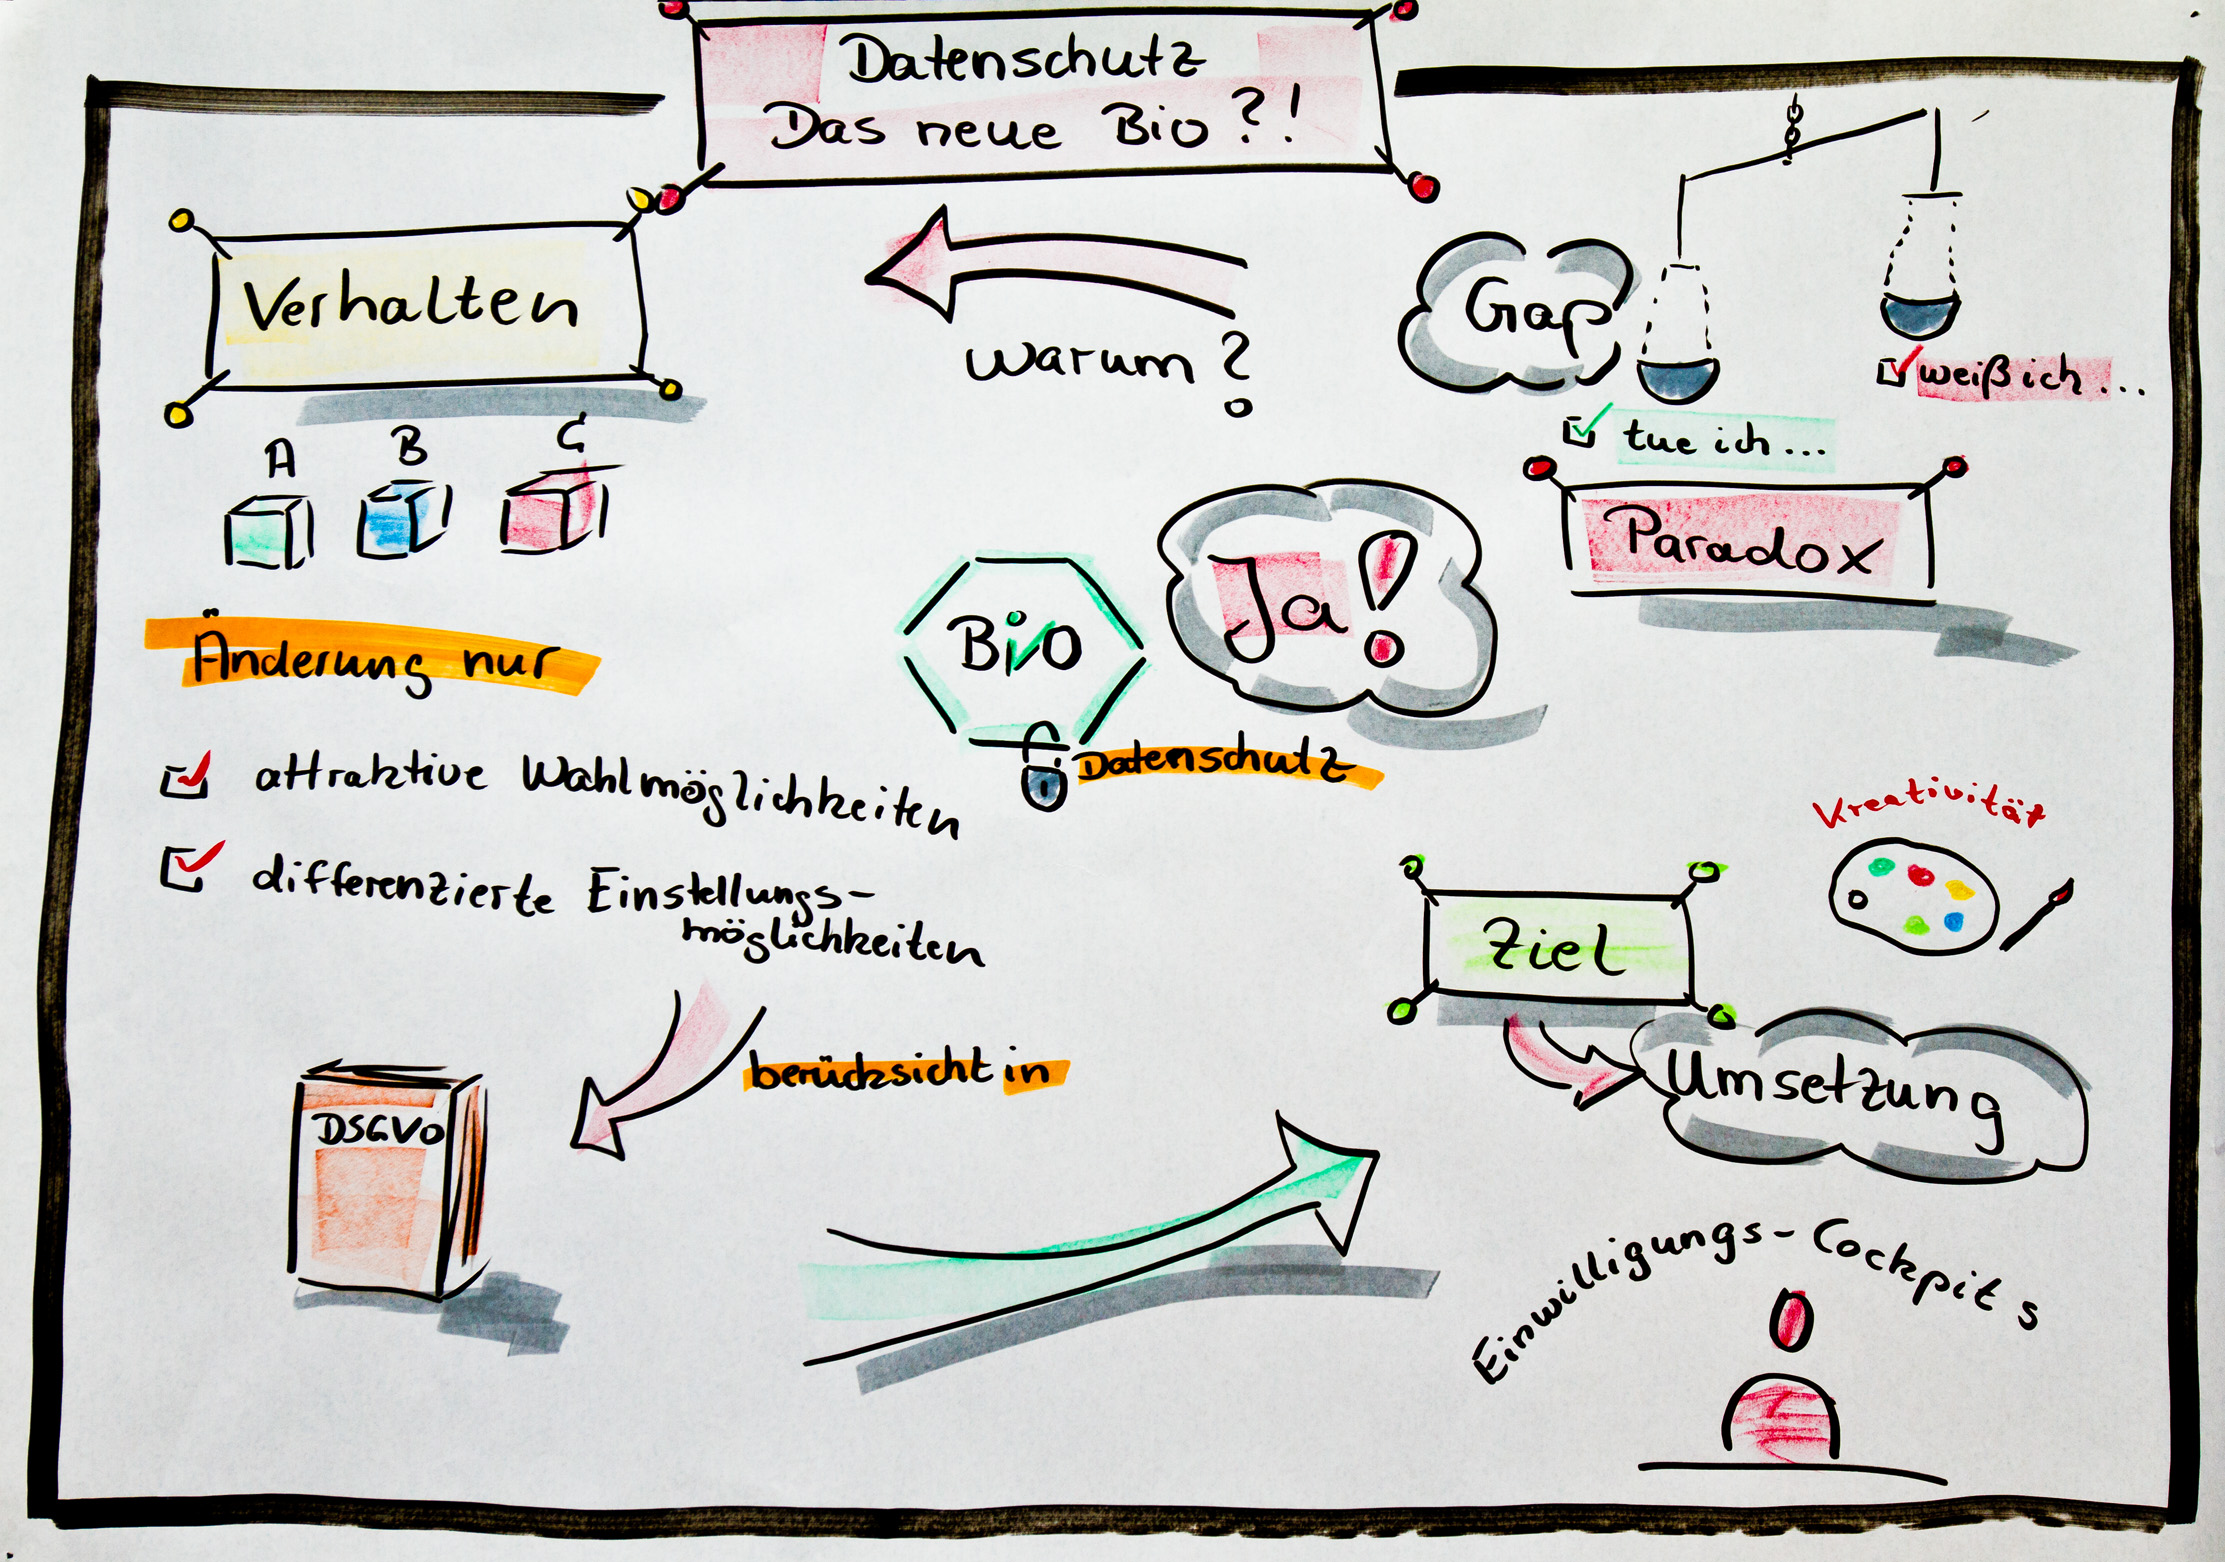 Datenschutz
Das neue Bio?!
Verhalten
A B C
Änderung nur
attraktive Wahlmöglichkeiten
differenzierte Einstellungs-
möglichkeiten
berücksicht in
DSGVO
Warum?
Gap
weiß ich...
tue ich...
Paradox
Bio
Ja!
Datenschutz
Kreativität
Ziel
Umsetzung
Einwilligungs-Cockpits